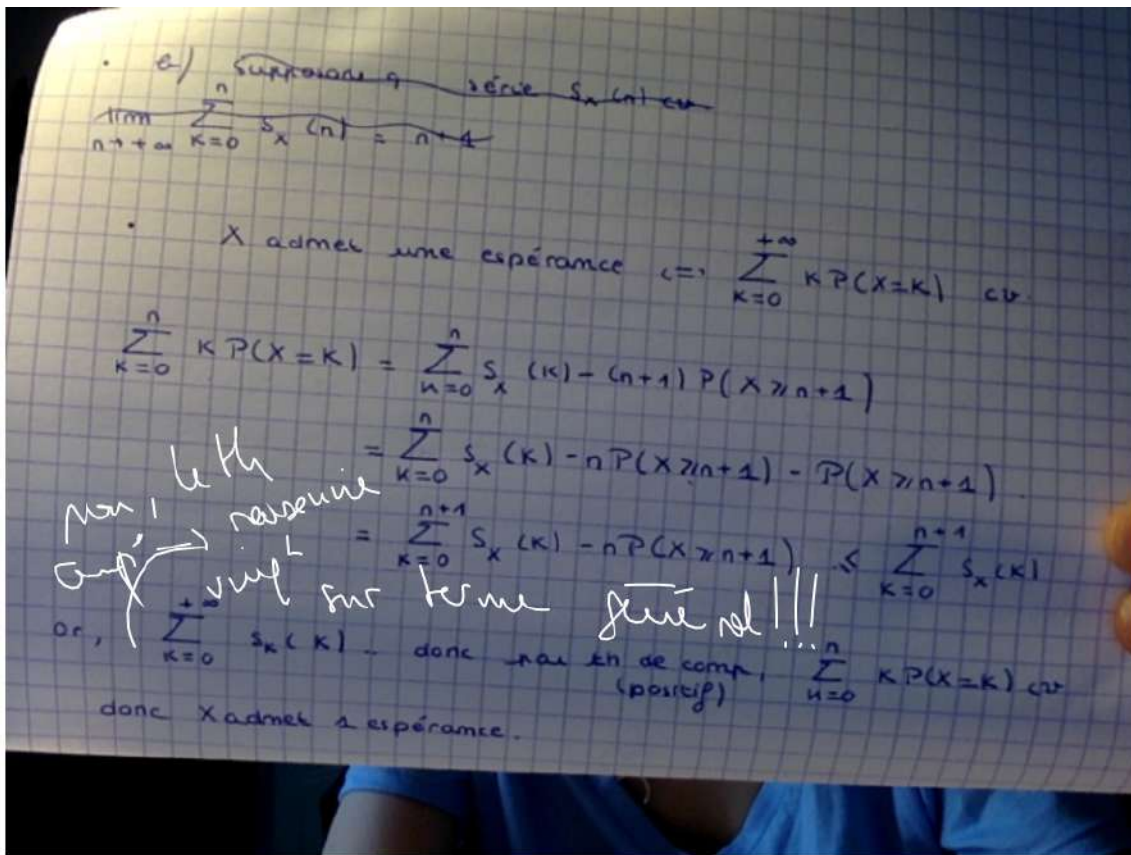 . e) Supposons q série S_x(n) cv
lim_{n→+∞} ∑_{k=0}^{n} S_x(n) = n+1
. X admet une espérance <=> ∑_{k=0}^{+∞} k P(X=k) cv.
∑_{k=0}^{n} k P(X=k) = ∑_{k=0}^{n} S_x(k) - (n+1) P(X⩾n+1)
= ∑_{k=0}^{n} S_x(k) - n P(X⩾n+1) - P(X⩾n+1).
= ∑_{k=0}^{n+1} S_x(k) - n P(X⩾n+1) ⩽ ∑_{k=0}^{n+1} S_x(k)
non, le th
sur terme général!!!...
or, ∑_{k=0}^{+∞} S_x(k) donc par th de comp, ∑_{k=0}^{n} k P(X=k) cv
(positif)
donc X admet 1 espérance.